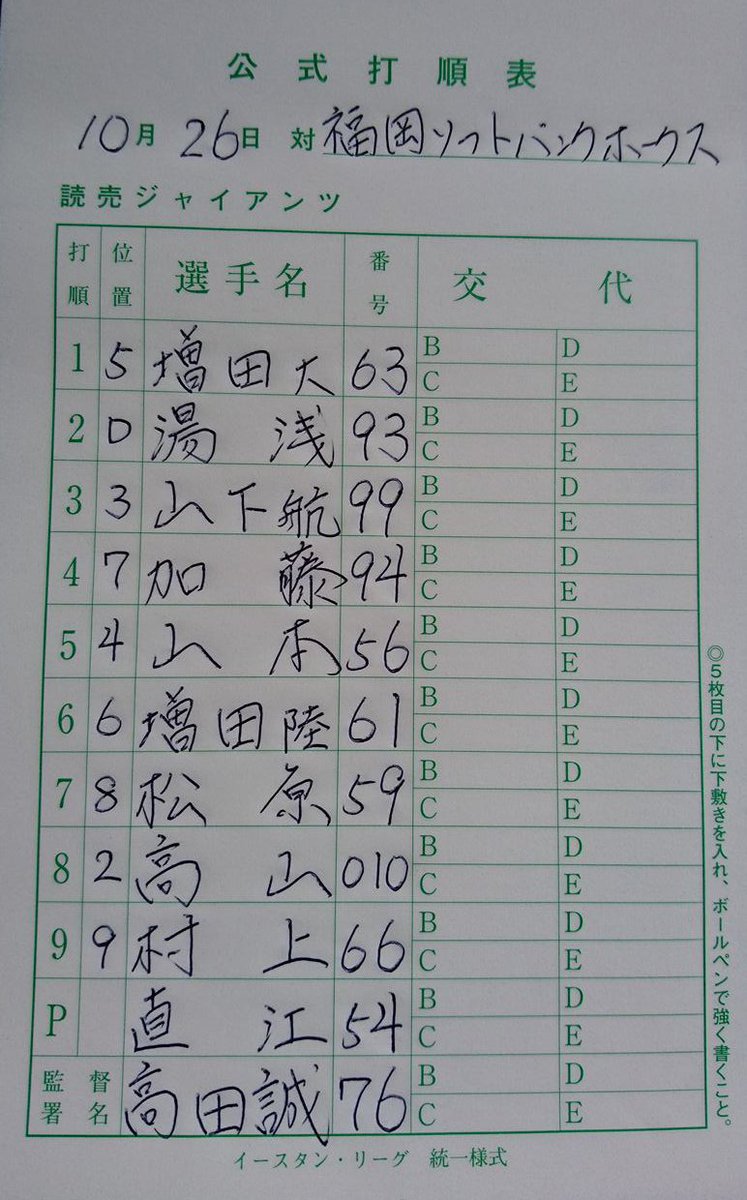 公式打順表
10月26日 対 福岡ソフトバンクホークス
読売ジャイアンツ
打順 位置 選手名 番号 交代
1 5 増田大 63 B D C E
2 D 湯浅 93 B D C E
3 3 山下航 99 B D C E
4 7 加藤 94 B D C E
5 4 山本 56 B D C E
6 6 増田陸 61 B D C E
7 8 松原 59 B D C E
8 2 高山 010 B D C E
9 9 村上 66 B D C E
P 直江 54 B D C E
監督署名 高田誠 76 B D C E
イースタン・リーグ 統一様式
◎5枚目の下に下敷きを入れ、ボールペンで強く書くこと。